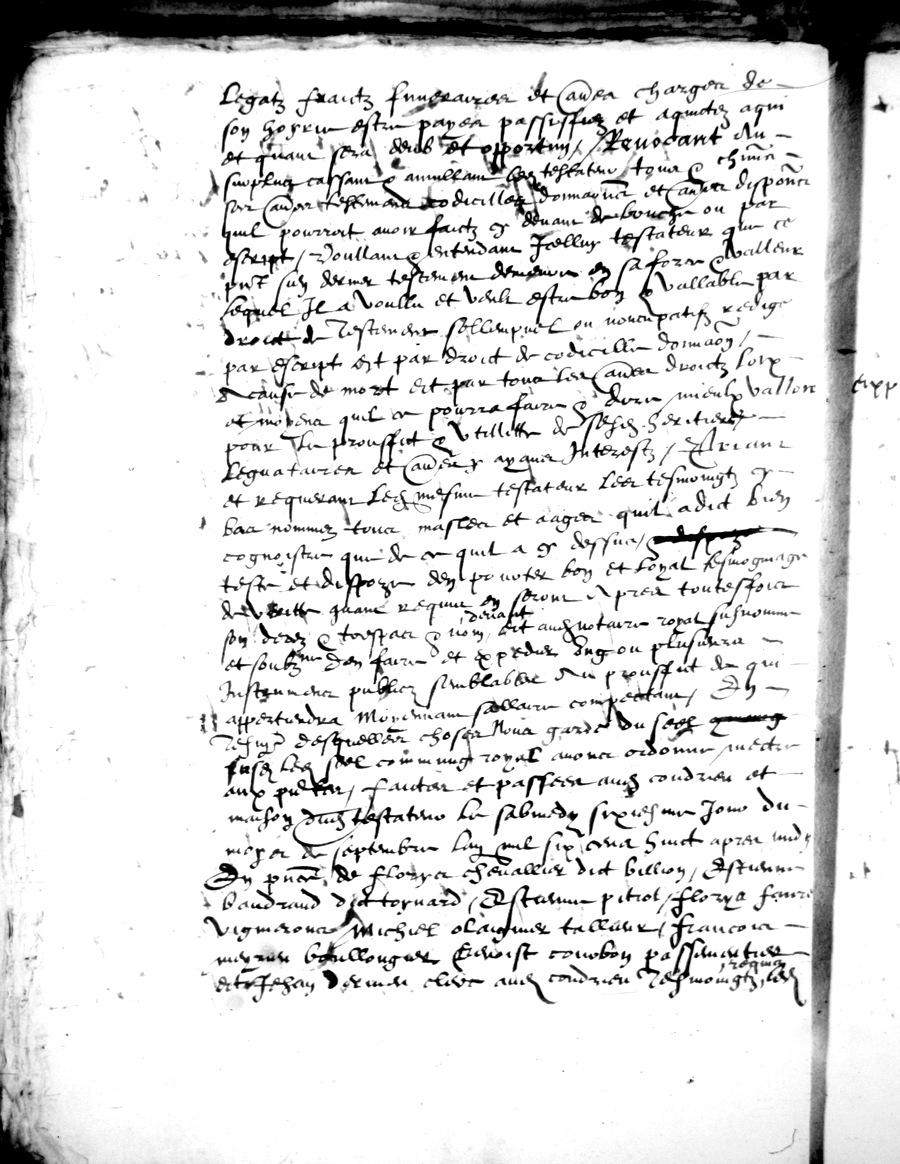 Legatz fraictz funeraires et aultres charges de
son hoyrie estre payes passiffiez et aquictez a qui
et quant sera deub et opportun / Revocant au
surplus cassant & anullant led testateur tous & chuns
ses aultres testemans codicilles donnaons et aultres disponns
quil pourroit avoir faictz cy devant de bouche ou par
escript / Voullant & entendant Icelluy testateur que ce
pnt sien dernier testement demeure en sa force & valleur
lequel Il a voullu et veult estre bon & vallable par
droict de Testement sollempnel ou noncupatifz redige
par escript et par droict de codicille donnaon /
A cause de mort et par tous les aultres droictz loix
et moyens quil se pourra faire & dire mieulx valloir
pour le prouffict & utillitte de sesd heritiers /
Legataires et aultres y ayans Interestz / Priant
et requerant led mesme testateur les tesmoingtz cy
bas nommez tous masles et aages quil a dict bien
cognoistre que de ce quil a cy dessus
teste et dispoze den pourter bon et loyal tesmognage
de veritte quant requis en seront Apres toutesfois
son deces & trespas & non devant / et aud notaire royal susnomme
et soubzne den faire et expedier ung ou plusieurs
Instrumens publicz semblables Au prouffict de qui
appertiendra Moyenant sallaire compectant / En
Tesmoing desquelles choses Nous garde du scel
susd led scel commung royal avons ordonne mectre
aux pntes / faictes et passees aud condrieu et
maison dud testateur le sabmedy sixiesme Jour du
moys de septembre lan mil six cens huict apres midy
En pnce de fleurys chevallier dict billion / Estienne
baudrand dict toynard / Estienne pitiot / fleurys faure
vignerons Michiel olaignier talleur / francois
meynier boullongier Benoist courbon passementier
et Jehan dernieu clerc aud condrieu Tesmoingtz requis led